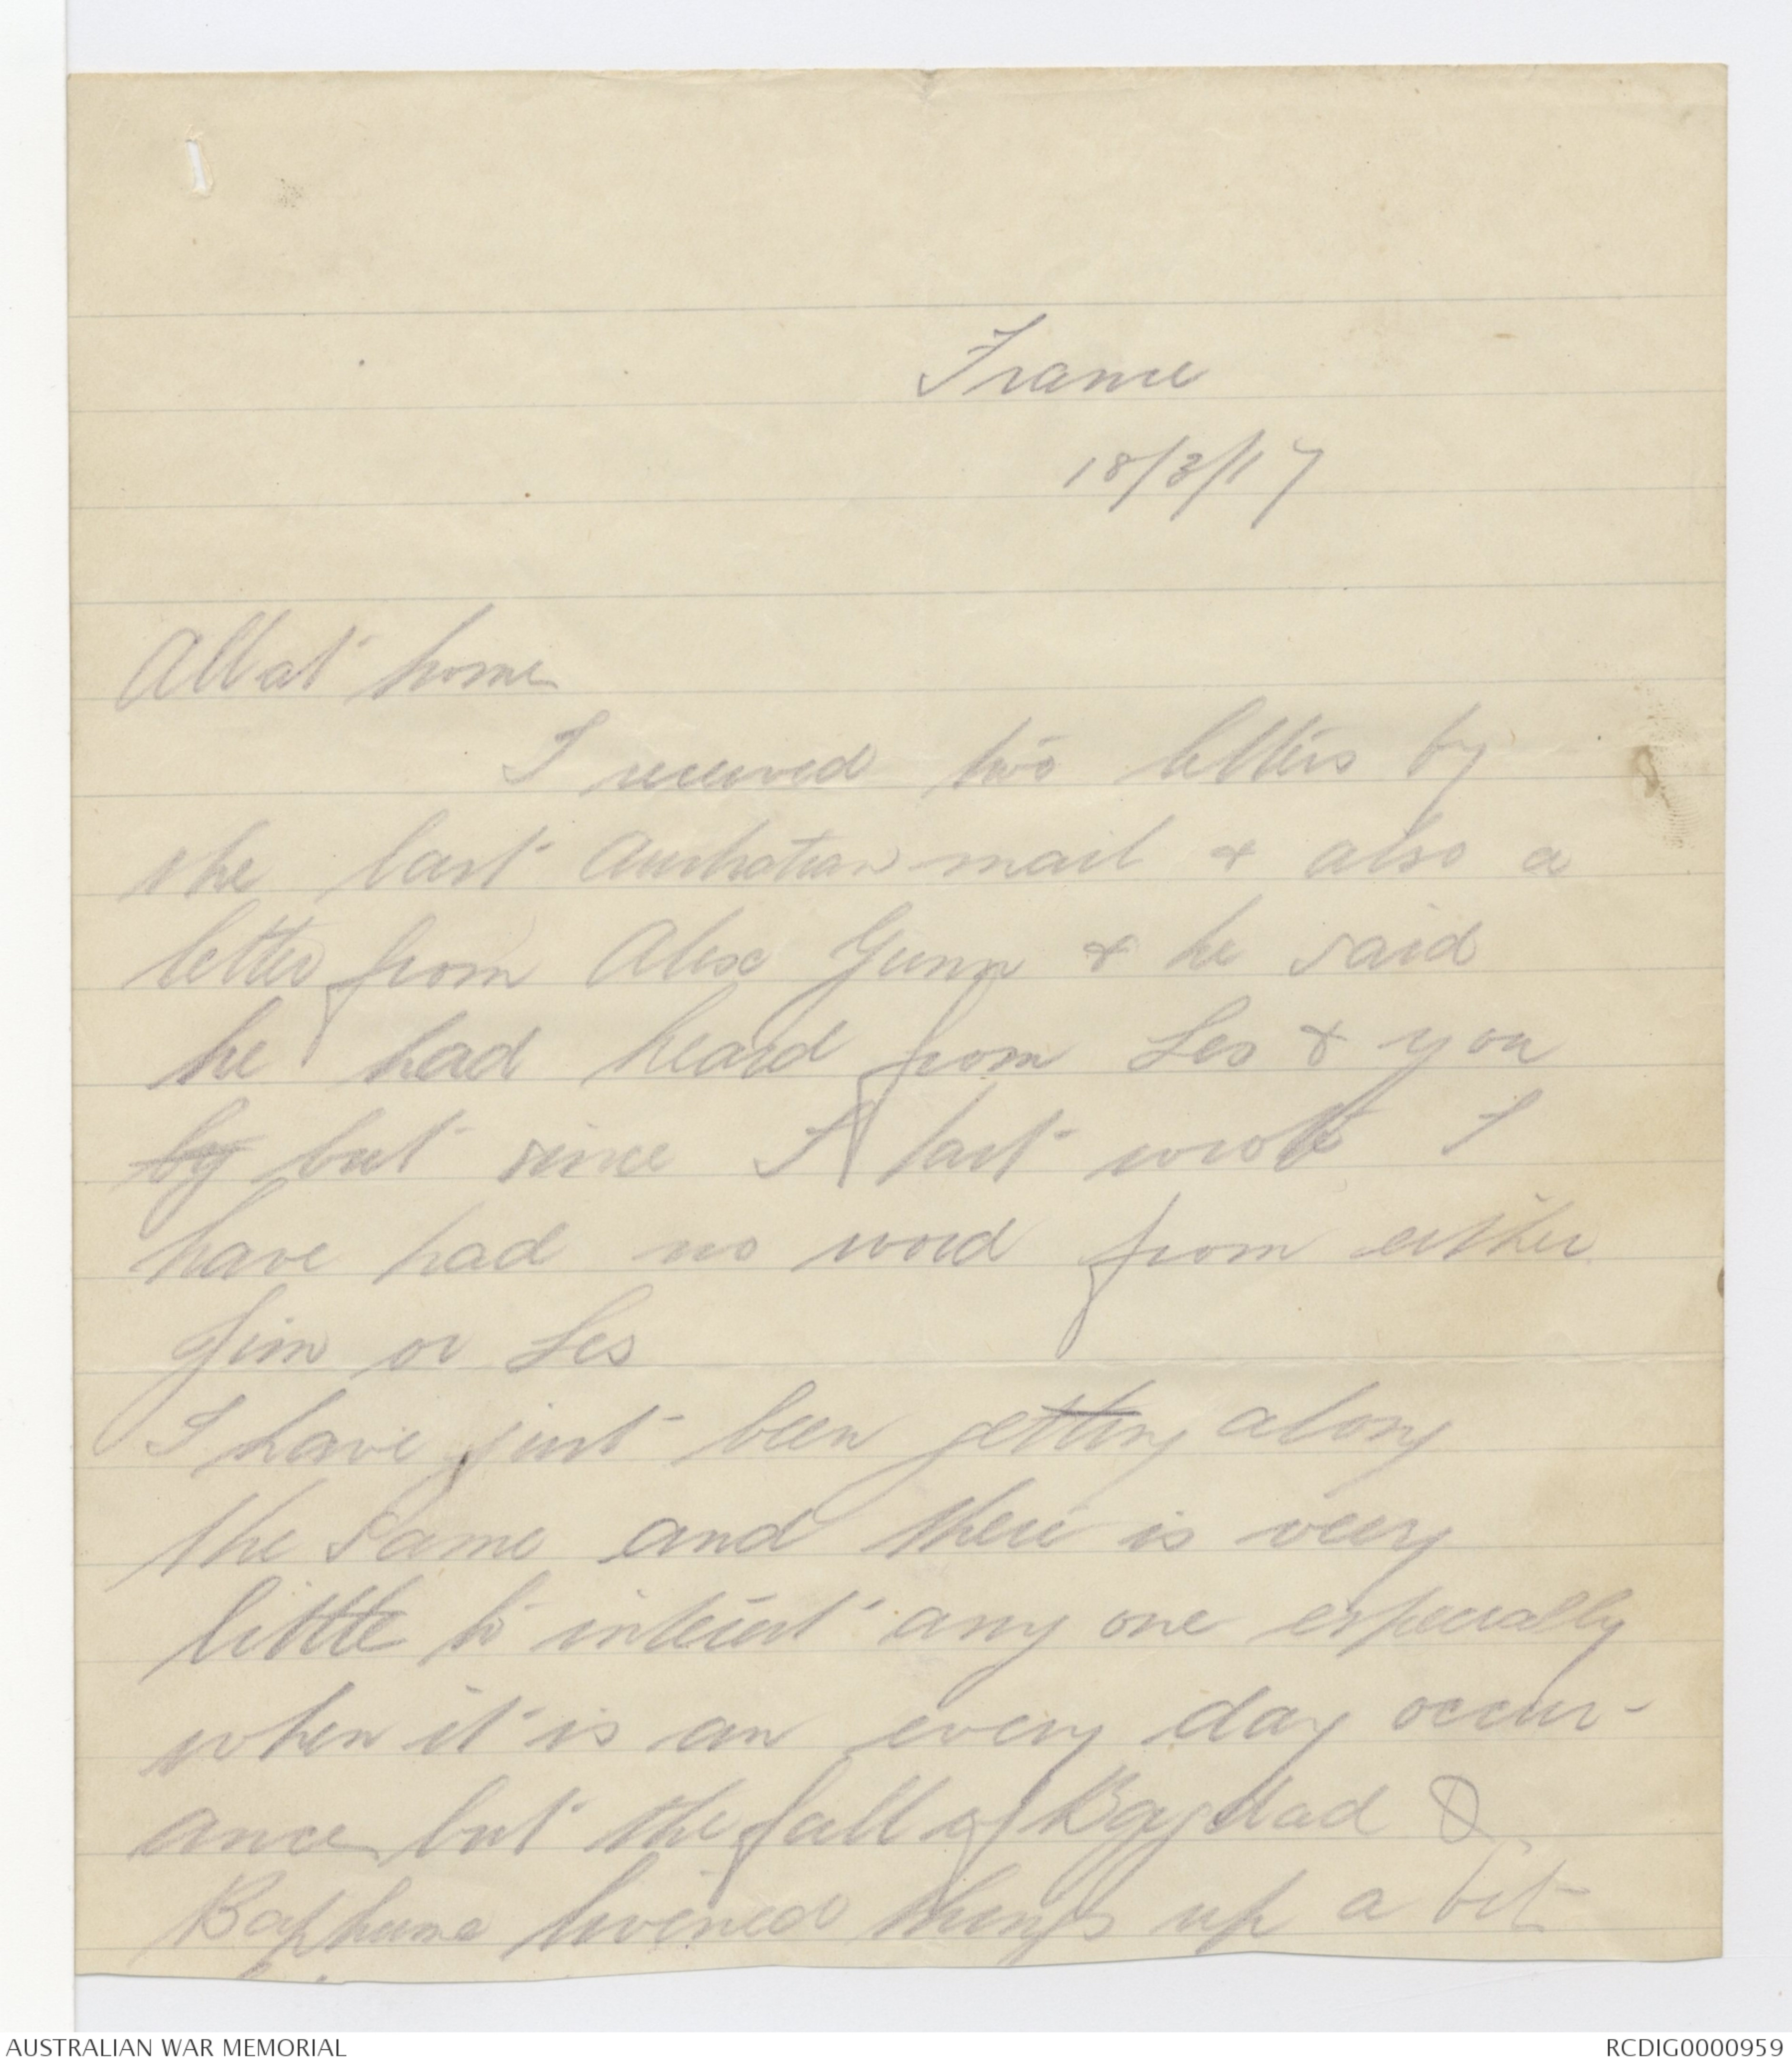 France
18/3/17
All at home
I received two letters by
the last Australian mail & also a
letter from Alex Gunn & he said
he had heard from Les & you
by but since I last wrote I
have had no word from either
Jim or Les
I have just been getting along
the same and there is very
little to interest any one especially
when it is an every day occur-
ance but the fall of Bagdad &
Baphume livened things up a bit
AUSTRALIAN WAR MEMORIAL
RCDIG0000959